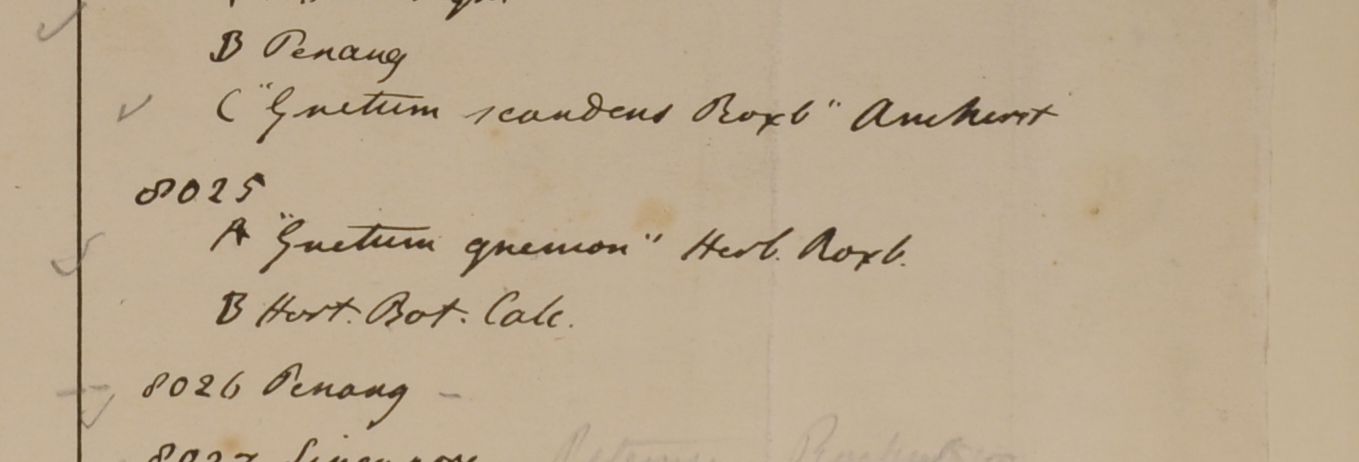 B Penang
C "Gnetum scandens Roxb" Amherst
8025
A "Gnetum gnemon" Herb. Roxb.
B Hort. Bot. Calc.
8026 Penang -
8027 Singapore